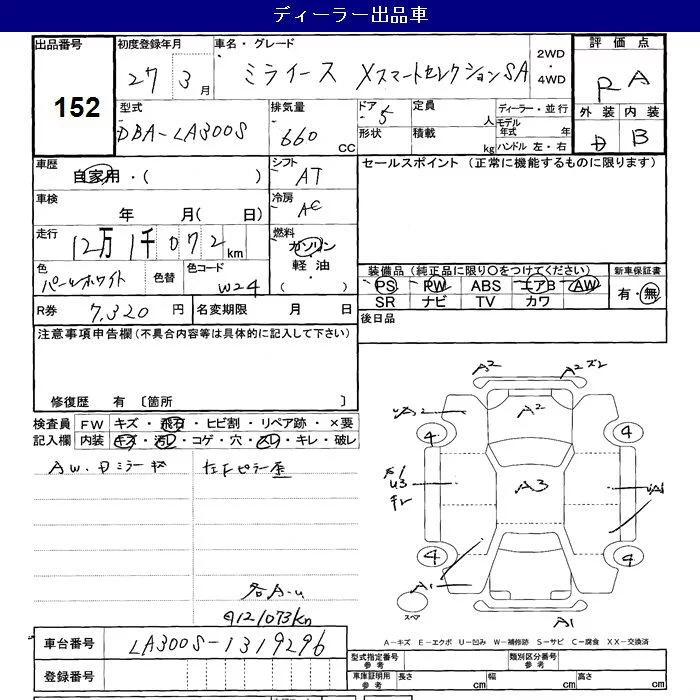 ディーラー出品車
出品番号 初度登録年月 車名・グレード 2WD・4WD 評価点
152 27年 3月 ミライース XスマートセレクションSA RA
外装 内装
D B
型式 排気量 ドア 定員 ディーラー・並行
DBA-LA300S 660 CC 5 人 モデル年式 年
形状 積載 kg ハンドル 左・右
車歴 シフト セールスポイント (正常に機能するものに限ります)
自家用・( ) AT
車検 冷房
年 月( 日) AC
走行 燃料
12万1千072km ガソリン
軽・油
( )
色 色替 色コード
パールホワイト W24
装備品 (純正品に限り○をつけてください) 新車保証書
PS PW ABS エアB AW 有・無
SR ナビ TV カワ
R券 7,320円 名変期限 月 日 後日品
注意事項申告欄(不具合内容等は具体的に記入して下さい)
修復歴 有 〔箇所 〕
検査員 FW キズ・飛石・ヒビ割・リペア跡・×要
記入欄 内装 キズ・汚レ・コゲ・穴・スレ・キレ・破レ
AW・Dミラーキズ 左Fピラー歪
各A-U
121073km
A2 A2 ズレ
A2 A2
4 4
U3 A3
4 4
A1
スペア A1
A-キズ E-エクボ U-凹み W-補修跡 S-サビ C-腐食 XX-交換済
車台番号 LA300S-1319296
登録番号
型式指定番号 参考 類別区分番号 参考
車庫証明用 参考 長さ cm 幅 cm 高さ cm